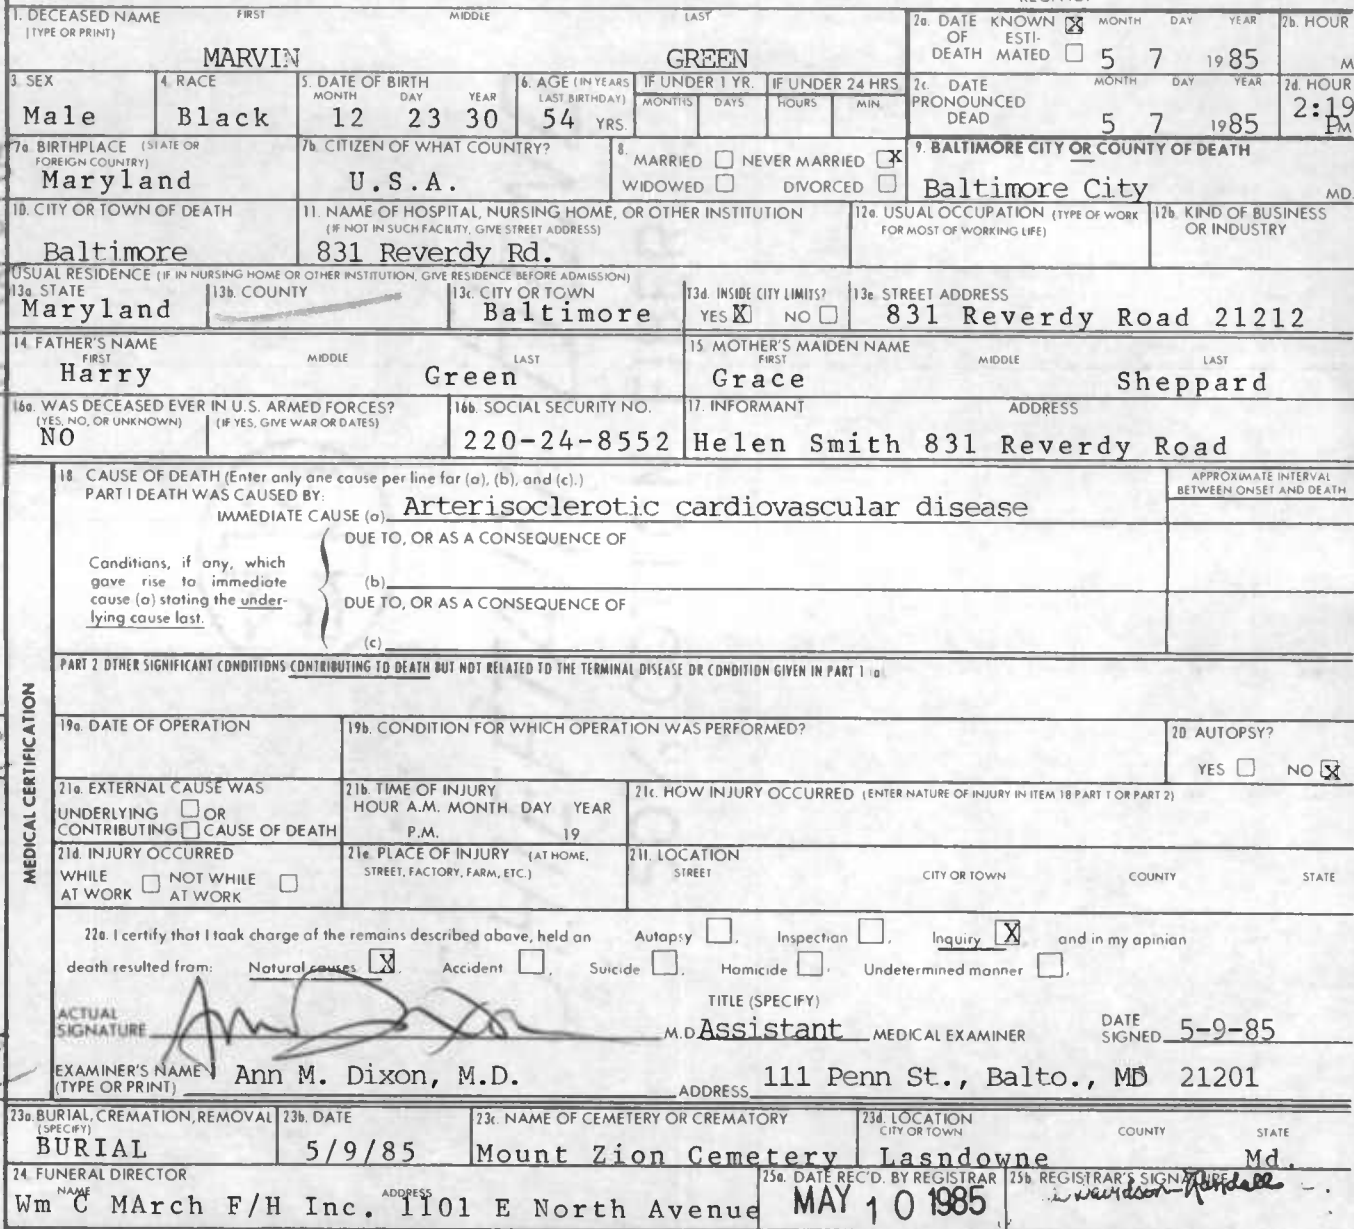 1. DECEASED NAME FIRST MIDDLE LAST
(TYPE OR PRINT)
MARVIN GREEN
2a. DATE KNOWN X MONTH DAY YEAR
OF ESTI-
DEATH MATED 5 7 1985
2b. HOUR
M
3 SEX
Male
4. RACE
Black
5. DATE OF BIRTH
MONTH DAY YEAR
12 23 30
6. AGE (IN YEARS
LAST BIRTHDAY)
54 YRS.
IF UNDER 1 YR.
MONTHS DAYS
IF UNDER 24 HRS
HOURS MIN.
2c. DATE MONTH DAY YEAR
PRONOUNCED
DEAD 5 7 1985
2d. HOUR
2:19
PM
7a BIRTHPLACE (STATE OR
FOREIGN COUNTRY)
Maryland
7b. CITIZEN OF WHAT COUNTRY?
U.S.A.
8.
MARRIED NEVER MARRIED X
WIDOWED DIVORCED
9. BALTIMORE CITY OR COUNTY OF DEATH
Baltimore City MD.
10. CITY OR TOWN OF DEATH
Baltimore
11. NAME OF HOSPITAL, NURSING HOME, OR OTHER INSTITUTION
(IF NOT IN SUCH FACILITY, GIVE STREET ADDRESS)
831 Reverdy Rd.
12a. USUAL OCCUPATION (TYPE OF WORK
FOR MOST OF WORKING LIFE)
12b. KIND OF BUSINESS
OR INDUSTRY
USUAL RESIDENCE (IF IN NURSING HOME OR OTHER INSTITUTION, GIVE RESIDENCE BEFORE ADMISSION)
13a STATE
Maryland
13b. COUNTY
13c. CITY OR TOWN
Baltimore
13d. INSIDE CITY LIMITS?
YES X NO
13e STREET ADDRESS
831 Reverdy Road 21212
14 FATHER'S NAME
FIRST MIDDLE LAST
Harry Green
15 MOTHER'S MAIDEN NAME
FIRST MIDDLE LAST
Grace Sheppard
16a. WAS DECEASED EVER IN U.S. ARMED FORCES?
(YES, NO, OR UNKNOWN) (IF YES, GIVE WAR OR DATES)
NO
16b. SOCIAL SECURITY NO.
220-24-8552
17. INFORMANT ADDRESS
Helen Smith 831 Reverdy Road
MEDICAL CERTIFICATION
18 CAUSE OF DEATH (Enter only one cause per line for (a), (b), and (c).)
PART I DEATH WAS CAUSED BY:
IMMEDIATE CAUSE (a) Arterisoclerotic cardiovascular disease
APPROXIMATE INTERVAL
BETWEEN ONSET AND DEATH
DUE TO, OR AS A CONSEQUENCE OF
Conditions, if any, which
gave rise to immediate
cause (a) stating the under-
lying cause last.
(b)
DUE TO, OR AS A CONSEQUENCE OF
(c)
PART 2 OTHER SIGNIFICANT CONDITIONS CONTRIBUTING TO DEATH BUT NOT RELATED TO THE TERMINAL DISEASE OR CONDITION GIVEN IN PART 1 (a)
19a. DATE OF OPERATION
19b. CONDITION FOR WHICH OPERATION WAS PERFORMED?
20 AUTOPSY?
YES NO X
21a. EXTERNAL CAUSE WAS
UNDERLYING OR
CONTRIBUTING CAUSE OF DEATH
21b. TIME OF INJURY
HOUR A.M. MONTH DAY YEAR
P.M. 19
21c. HOW INJURY OCCURRED (ENTER NATURE OF INJURY IN ITEM 18 PART 1 OR PART 2)
21d. INJURY OCCURRED
WHILE NOT WHILE
AT WORK AT WORK
21e PLACE OF INJURY (AT HOME,
STREET, FACTORY, FARM, ETC.)
21f. LOCATION
STREET CITY OR TOWN COUNTY STATE
22a. I certify that I took charge of the remains described above, held an Autopsy , Inspection , Inquiry X and in my opinion
death resulted from: Natural causes X , Accident , Suicide , Homicide , Undetermined manner ,
ACTUAL
SIGNATURE
M.D.
TITLE (SPECIFY)
Assistant MEDICAL EXAMINER
DATE
SIGNED 5-9-85
EXAMINER'S NAME
(TYPE OR PRINT) Ann M. Dixon, M.D.
ADDRESS 111 Penn St., Balto., MD 21201
23a. BURIAL, CREMATION, REMOVAL
(SPECIFY)
BURIAL
23b. DATE
5/9/85
23c. NAME OF CEMETERY OR CREMATORY
Mount Zion Cemetery
23d. LOCATION
CITY OR TOWN COUNTY STATE
Lasndowne Md.
24 FUNERAL DIRECTOR
NAME ADDRESS
Wm C MArch F/H Inc. 1101 E North Avenue
25a. DATE REC'D. BY REGISTRAR
MAY 10 1985
25b REGISTRAR'S SIGNATURE